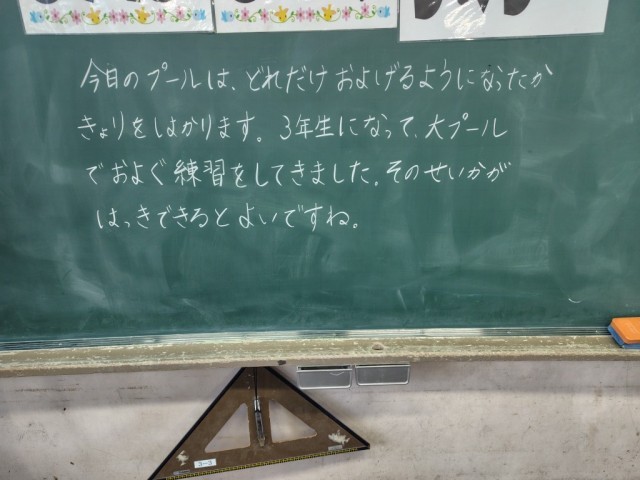 今日のプールは、どれだけおよげるようになったか
きょりをはかります。3年生になって、大プール
でおよぐ練習をしてきました。そのせいかが
はっきできるとよいですね。
3-3